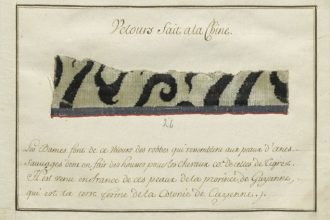 Velours fait a la Chine.
26
Les Dames font de ce Velours des robbes qui ressemblent aux peaux d'anes
Sauvages dont on fait des housses pour les chevaux et de celles de Tigres.
Il est venu en france de ces peaux de la province de Guyanne,
qui est la terre ferme de la Colonie de Cayenne,